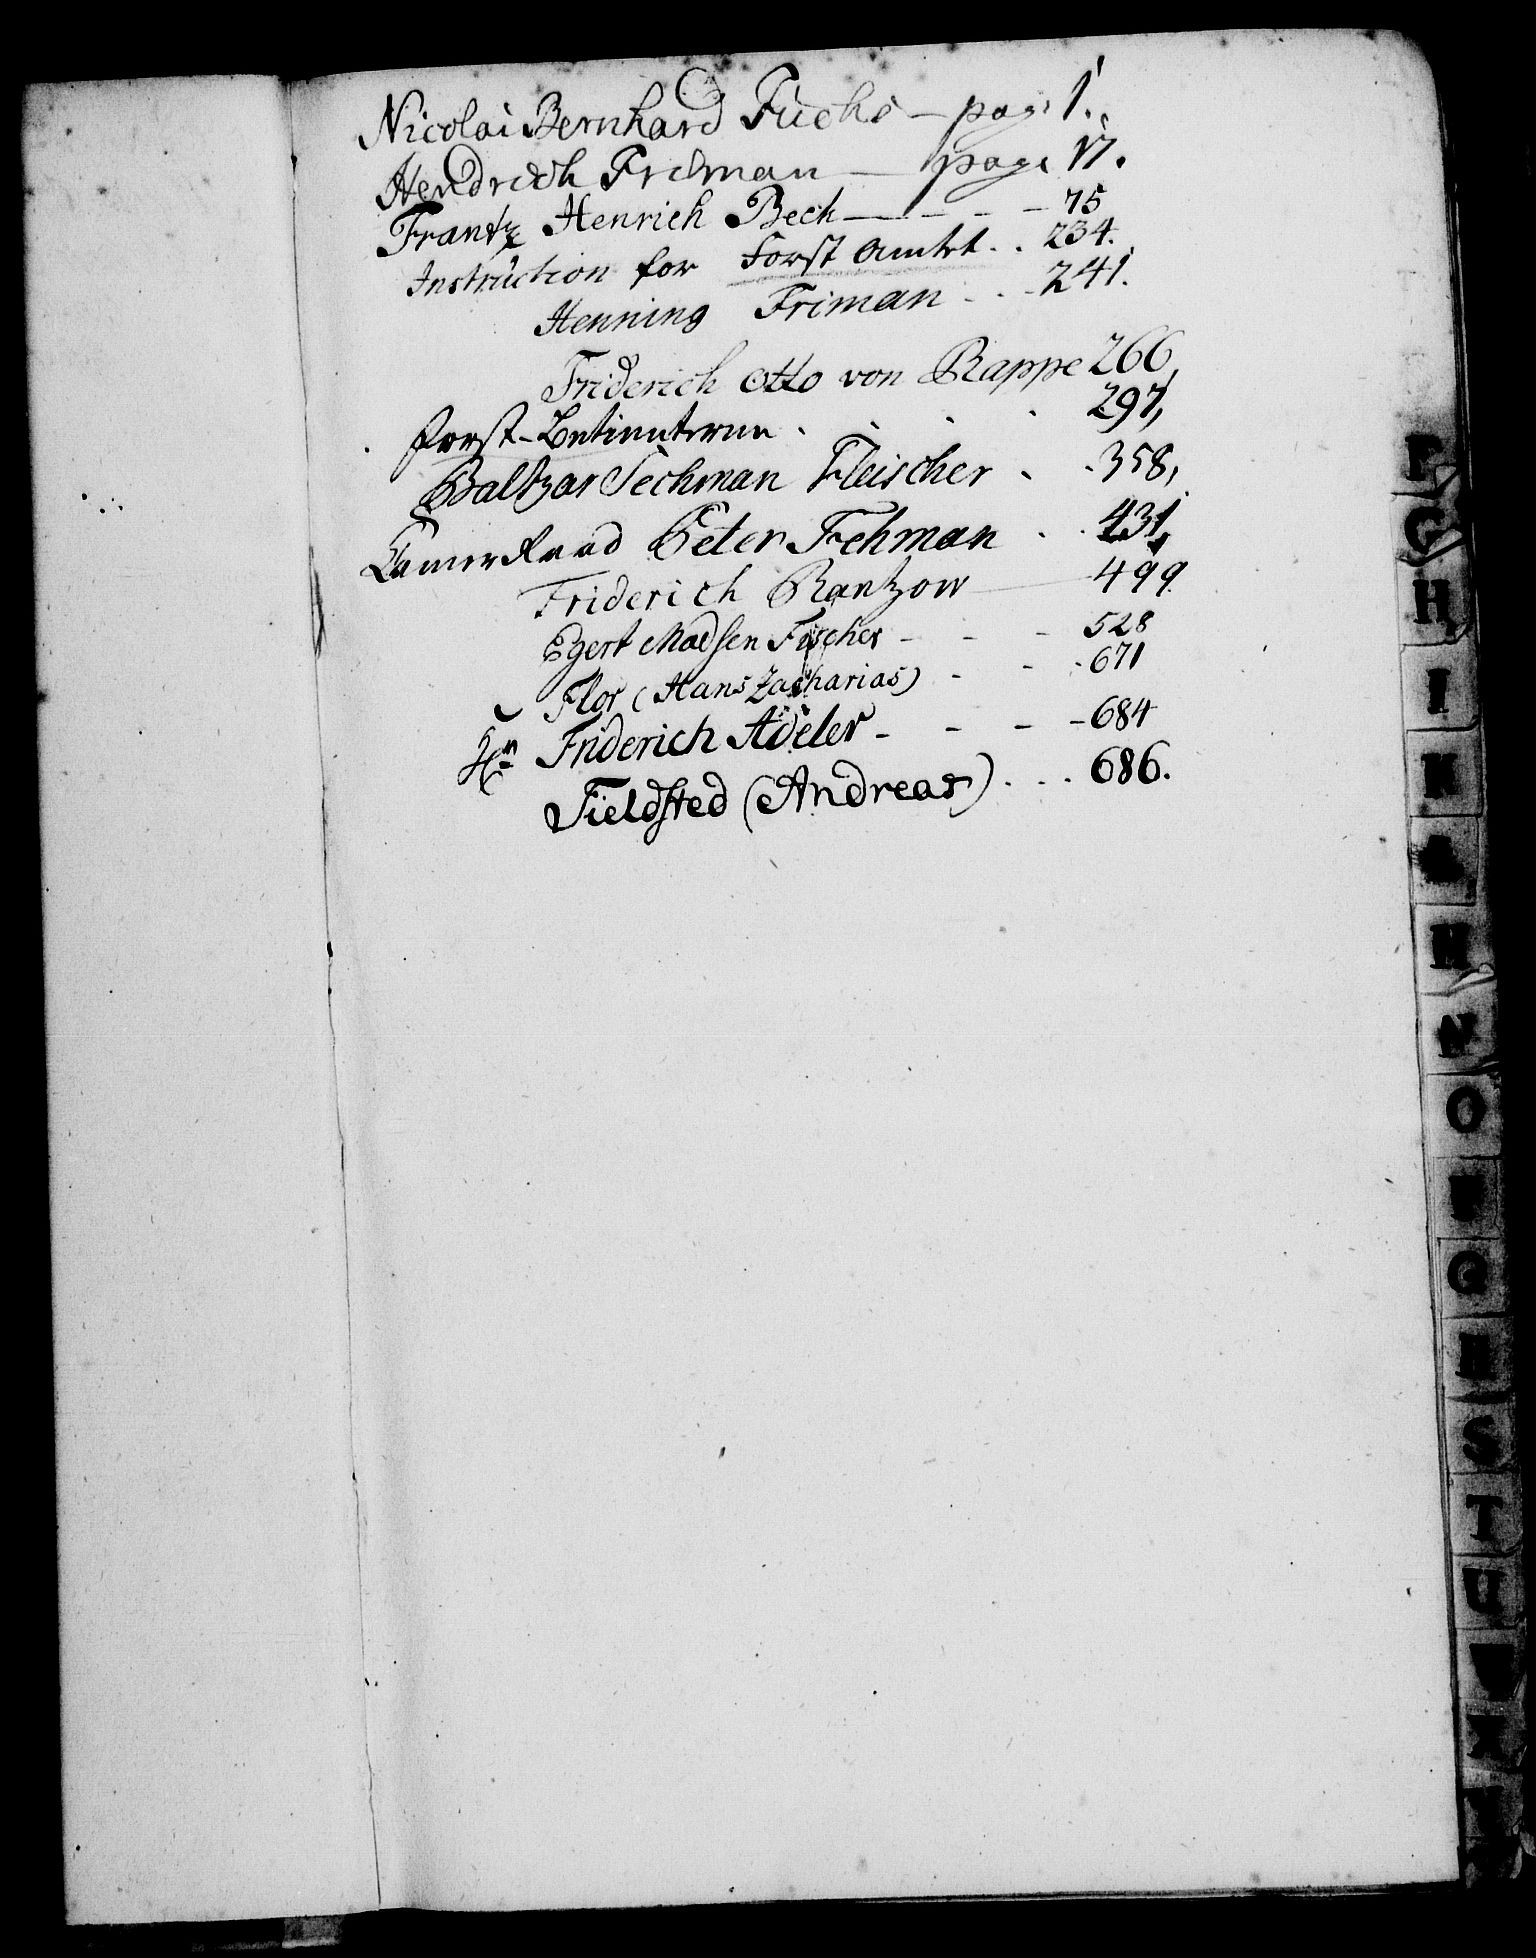 Nicolai Bernhard Fuchs — page 1.
Hendrich Friman — page 17.
Frantz Henrich Bech — - - - 75
Instruction for Forst Amtet . . 234.
Henning Friman . . . 241.
Friderich Otto von Rappe 266,
Forst-Betienterne . . . . 297,
Baltzar Sechman Fleischer . . 358,
Cammer Raad Peter Fehman . . 431,
Friderich Rantzow — 499.
Egert Madsen Fischer - - - 528
Flor (Hans Zacharias) - - . 671
Hr Friderich Adeler - - - - 684
Fieldsted (Andreas) . . . 686.
F
G
H
I
K
L
M
N
O
P
Q
R
S
T
U
W
X
Y